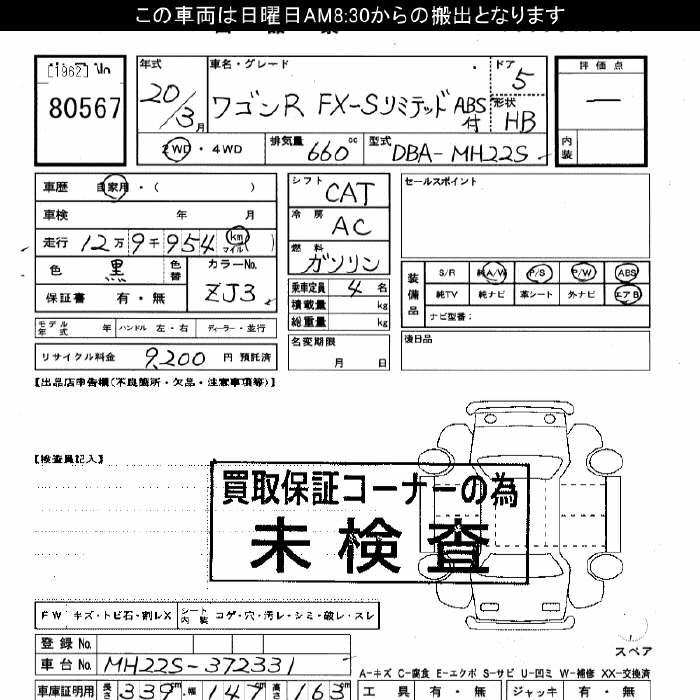 この車両は日曜日AM8:30からの搬出となります
[1962] No
80567
年式
20/3月
車名・グレード
ワゴンR FX-Sリミテッド ABS付
ドア
5
形状
HB
評価点
—
内装
2WD・4WD
排気量
660cc
型式
DBA-MH22S
車歴 自家用・( )
車検 年 月
走行 12万9千954 km マイル ( )
色 黒 色替
カラーNo.
ZJ3
保証書 有・無
モデル年式 年 ハンドル 左・右 ディーラー・並行
リサイクル料金 9,200 円 預託済
シフト CAT
冷房 AC
燃料 ガソリン
乗車定員 4 名
積載量 kg
総重量 kg
名変期限
月 日
セールスポイント
装備品
S/R 純A/W P/S P/W ABS
純TV 純ナビ 革シート 外ナビ エアB
ナビ型番:
後日品
【出品店申告欄(不良箇所・欠品・注意事項等)】
【検査員記入】
買取保証コーナーの為
未検査
FW キズ・トビ石・割レX
シート内装 コゲ・穴・汚レ・シミ・破レ・スレ
スペア
登録No.
車台No. MH22S-372331
A-キズ C-腐食 E-エクボ S-サビ U-凹ミ W-補修 XX-交換済
車庫証明用 長さ 339cm 幅 147cm 高さ 163cm
工具 有・無 ジャッキ 有・無